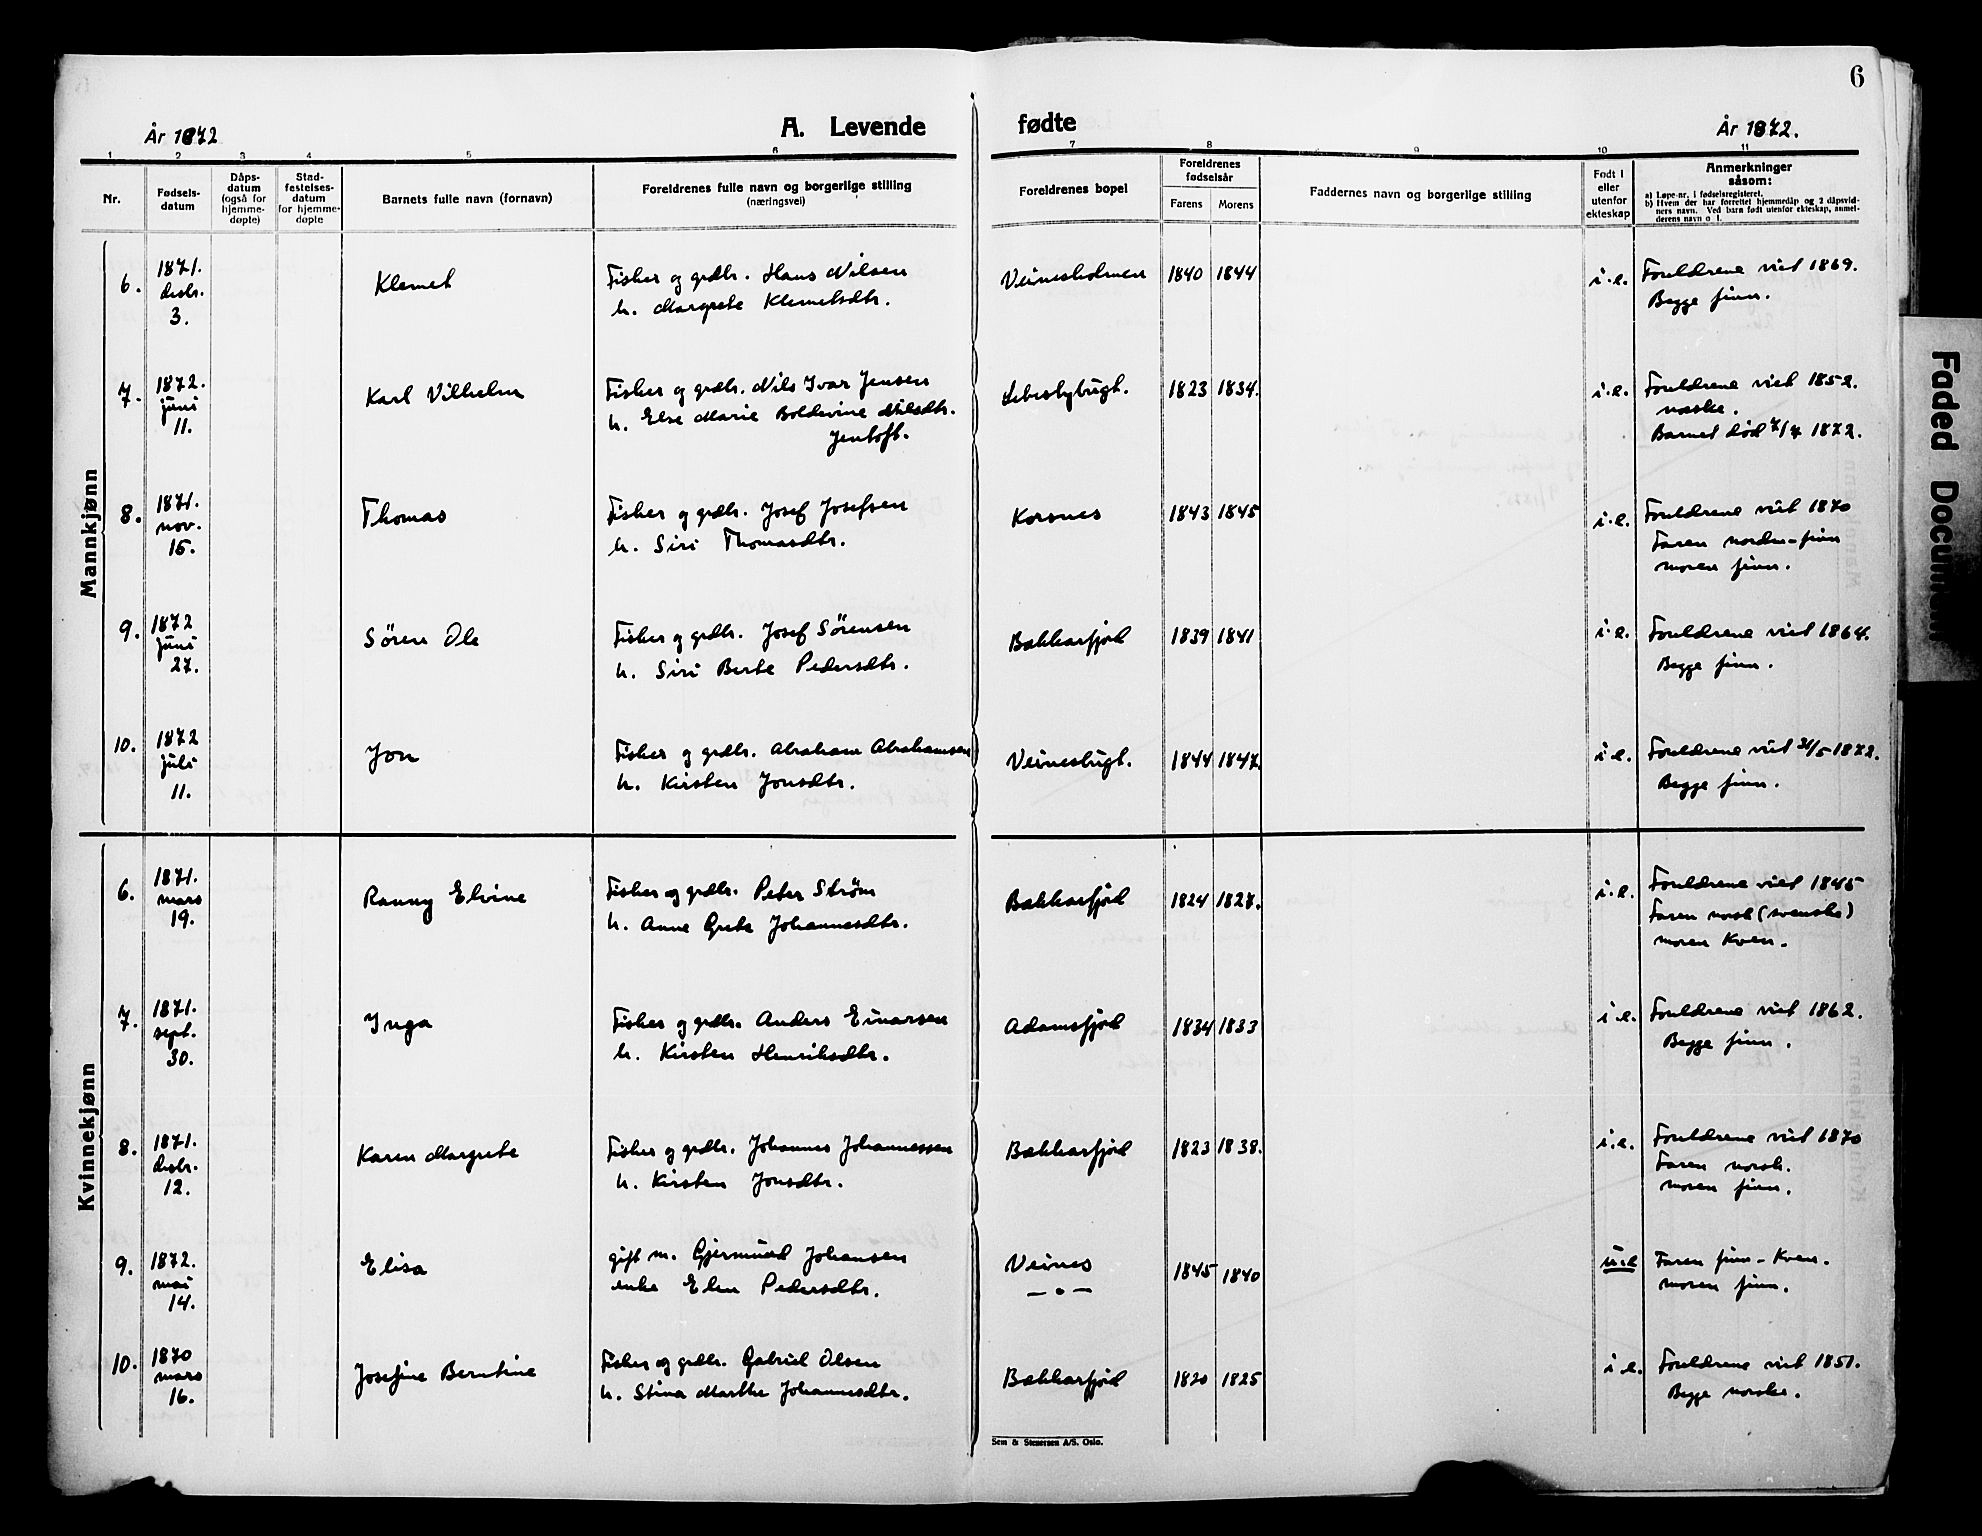 6
År 1872
A. Levende
fødte
År 1872.
1 2 3 4 5 6 7 8 9 10 11
Nr.
Fødsels-
datum
Dåps-
datum
(også for
hjemme-
døpte)
Stad-
festelses-
datum
for hjemme-
døpte
Barnets fulle navn (fornavn)
Foreldrenes fulle navn og borgerlige stilling
(næringsvei)
Foreldrenes bopel
Foreldrenes
fødselsår
Farens Morens
Faddernes navn og borgerlige stilling
Født i
eller
utenfor
ekteskap
Anmerkninger
såsom:
a) Løpe-nr. i fødselsregisteret.
b) Hvem der har forrettet hjemmedåp og 2 dåpsvid-
ners navn. Ved barn født utenfor ekteskap, anmel-
derens navn o. l.
Mannkjønn
6.
1871.
desbr.
3.
Klemet
Fisker og grdbr. Hans Nilsen
h. Margrete Klemetsdtr.
Veinesholmen
1840 1844
i.e.
Foreldrene viet 1869.
Begge finn.
7.
1872.
juni
11.
Karl Vilhelm
Fisker og grdbr. Nils Ivar Jensen
h. Else Marie Boldevine Nilsdtr.
Jentoft.
Lebesbybugt.
1823 1834.
i.e.
Foreldrene viet 1852.
norske.
Barnet død 7/7 1872.
8.
1871.
nov.
15.
Thomas
Fisker og grdbr. Josef Josefsen
h. Siri Thomasdtr.
Korsnes
1843 1845
i.e.
Foreldrene viet 1870
Faren norsk-finn
moren finn.
9.
1872
juni
27.
Søren Ole
Fisker og grdbr. Josef Sørensen
h. Siri Berte Pedersdtr.
Bekkarfjord
1839 1841
i.e.
Foreldrene viet 1864.
Begge finn.
10.
1872
juli
11.
Jon
Fisker og grdbr. Abraham Abrahamsen
h. Kirsten Jonsdtr.
Veinesbugt.
1844 1847.
i.e.
Foreldrene viet 31/5 1872.
Begge finn.
Kvinnekjønn
6.
1871.
mars
19.
Ranny Elvine
Fisker og grdbr. Peter Strøm
h. Anne Grete Johannesdtr.
Bekkarfjord
1824 1827.
i.e.
Foreldrene viet 1845
Faren norsk (svenske)
moren Kven.
7.
1871.
sept.
30.
Inga
Fisker og grdbr. Anders Einarsen
h. Kirsten Henriksdtr.
Adamsfjord
1834 1833
i.e.
Foreldrene viet 1862.
Begge finn.
8.
1871.
desbr.
12.
Karen Margrete
Fisker og grdbr. Johannes Johannessen
h. Kirsten Jonsdtr.
Bekkarfjord
1823 1838.
i.e.
Foreldrene viet 1870
Faren norsk.
moren finn.
9.
1872.
mai
14.
Elisa
gift m. Gjermund Johansen
enke Elen Pedersdtr.
Veines
—„—
1845 1840
u.e
Faren finn-Kven.
moren finn.
10.
1870
mars
16.
Josefine Berntine
Fisker og grdbr. Gabriel Olsen
h. Stina Marthe Johannesdtr.
Bekkarfjord
1820 1825
i.e.
Foreldrene viet 1851.
Begge norske.
Sem & Stenersen A/S. Oslo.
Faded Document